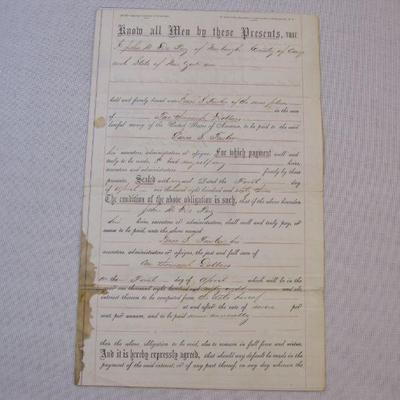 Know all Men by these Presents, THAT
I John W. of Newburgh County of
and State of New York am
held and firmly bound unto of the same place
in the sum
of Two thousand Dollars
lawful money of the United States of America, to be paid to the said
executors, administrators or assigns: For which payment well and
truly to be made, I bind myself my heirs,
executors and administrators firmly by these
presents. Sealed with my seal Dated the First day
of April one thousand eight hundred and sixty
The condition of the above obligation is such, that if the above bounden
John W.
heirs, executors or administrators, shall well and truly pay, or
cause to be paid, unto the above named
his
executors, administrators or assigns, the just and full sum of
One thousand Dollars
on the First day of April which will be in the
year one thousand eight hundred and sixty eight and the
interest thereon to be computed from the date hereof
at and after the rate of seven per
cent per annum, and to be paid semi annually
then the above obligation to be void, else to remain in full force and virtue.
And it is hereby expressly agreed, that should any default be made in the
payment of the said interest, or of any part thereof, on any day whereon the